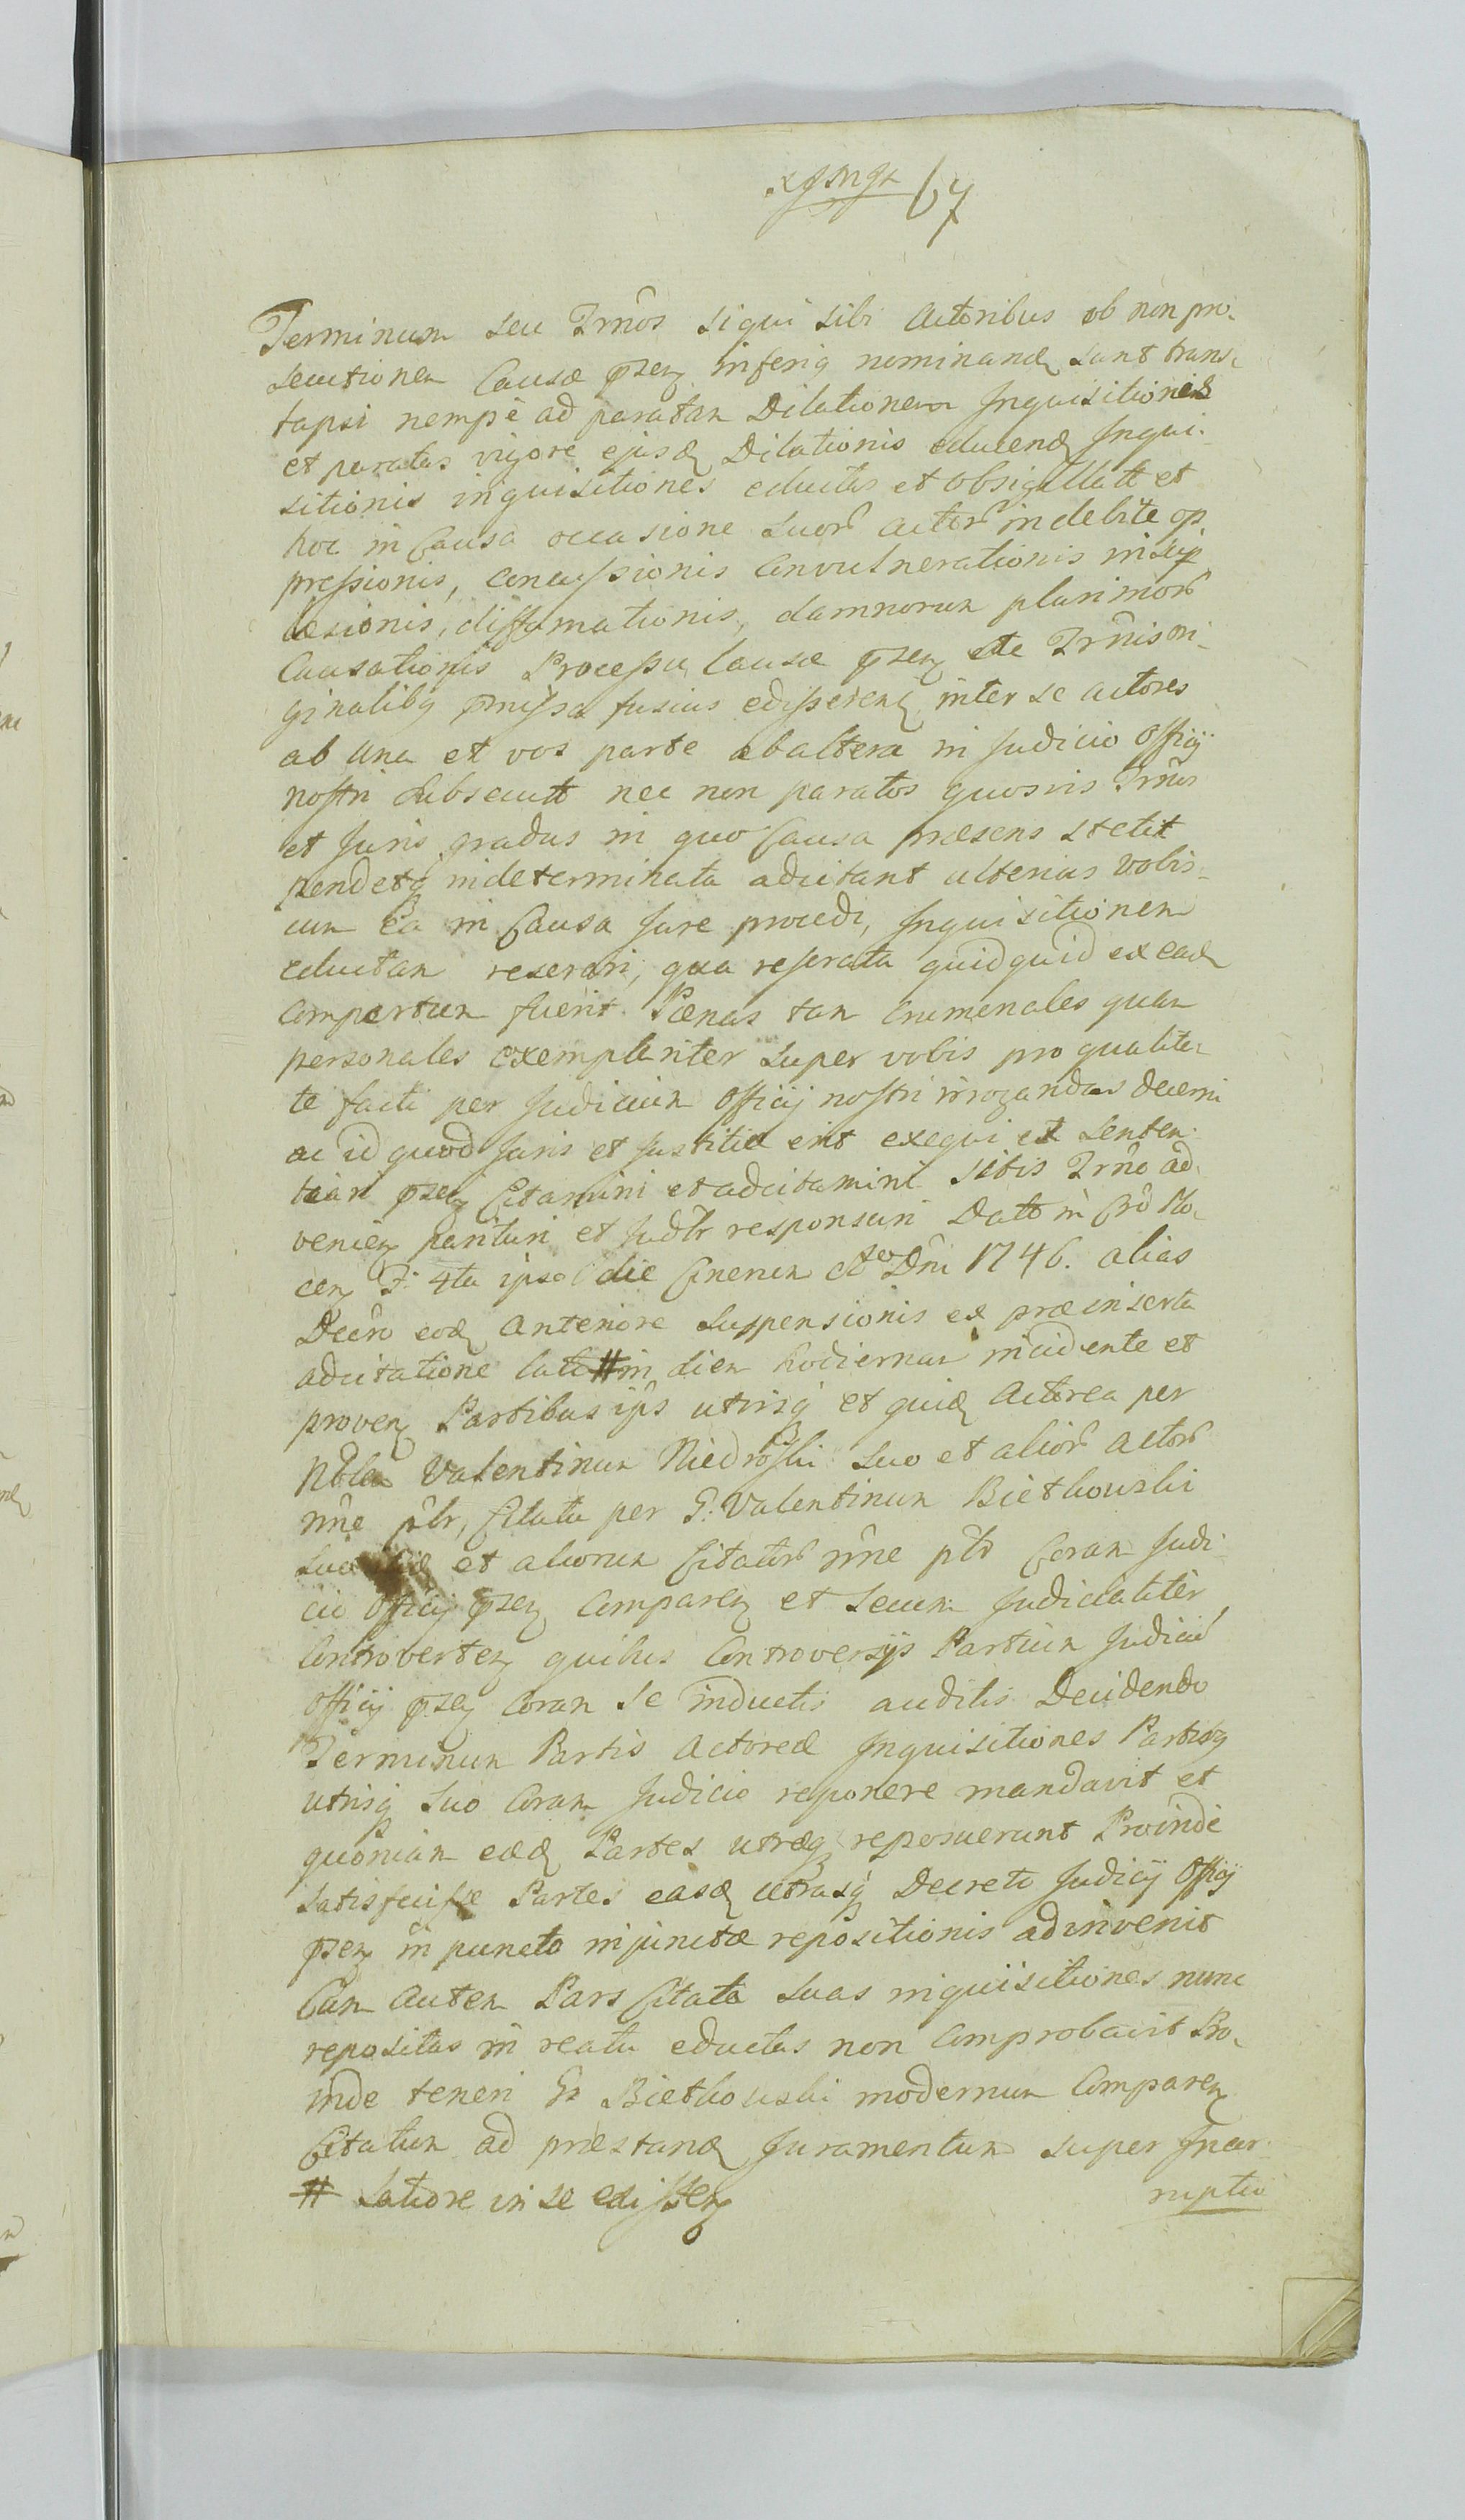 67
Terminum seu Trnôs siqui sibi Actoribus ob non pro-
secutionem Causæ pzen inferiq nominand sunt trans-
lapsi nempè ad paratam Dilationem Inquisitionis
et paratas vigore ejusd Dilationis educend Inqui-
sitionis inquisitiones eductas et obsigillatt et
hoc in Causa occasione suor actor indebite op-
pressionis, concussionis Convulnerationis
læsionis, diffamationis, damnorum plurimor
Causationis Processu Causæ pzen de Trnîs ori-
ginalibq pmissa fusius edisseren inter se actores
ab una et vos parte ab altera in Judicio Officij
nostri subsecutt nec non paratos quosvis Trnôs
et Juris gradus in quo Causa præsens stetit
pendetq indeterminata adcitant ulterius vobis-
cum Ea in Causa Jure procedi, Inquisitionem
eductam reserari, qua reserata quidquid ex ead
Compertum fuerit Pænas tam Crumenales quam
personales exemplariter super vobis pro qualita-
te facti per Judicium Officij nostri irrogandas decerni
ac id quod Juris et Justitiæ erit exequi et senten-
tiam pzen Citamini et adcitamini sitis Trno ad-
venien parituri et Judlr responsuri Datt in Cro Plo-
cen F. 4ta ipso die Cinerum Ao Dni 1746. alias
Decro eod Anteriore Suspensionis ex præinserta
adcitatione lati # in diem hodiernam incidente et
proven Partibus ijs utrisq et quid Actorea per
Nblem Valentinum Niedroski suo et alior Actor
nne plr, Citata per G: Valentinum Bietkowski
suo et aliorum Citator nne plr Coram Judi-
cio Officij pzen Comparen et secum Judicialiter
Controverten quibus Controversijs Partium Judiciu
Officij pzen Coram se inductis auditis Decidendo
Terminum Partis Actoreæ Inquisitiones Partibq
utrisq suo Coram Judicio reponere mandavit et
quoniam eæd Partes utræq reposuerunt Proinde
satisfecisse Partes easd utrasq Decreto Judicij Officij
pzen in puncto injunctæ repositionis adinvenit
Cum Autem Pars Citata suas inquisitiones nunc
repositas in reatu eductas non Comprobavit Pro-
inde teneri Gr Bietkowski modernum Comparen
Citatum ad præstand Juramentum super Incor-
# Latiore in se edissen
ruptio